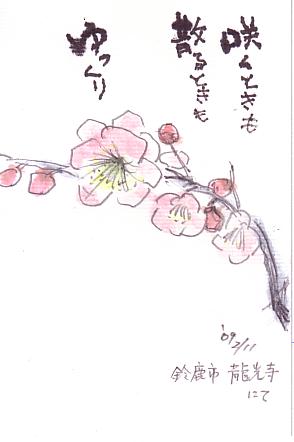 咲くときも
散るときも
ゆっくり
'09 2/11
鈴鹿市 龍光寺
にて